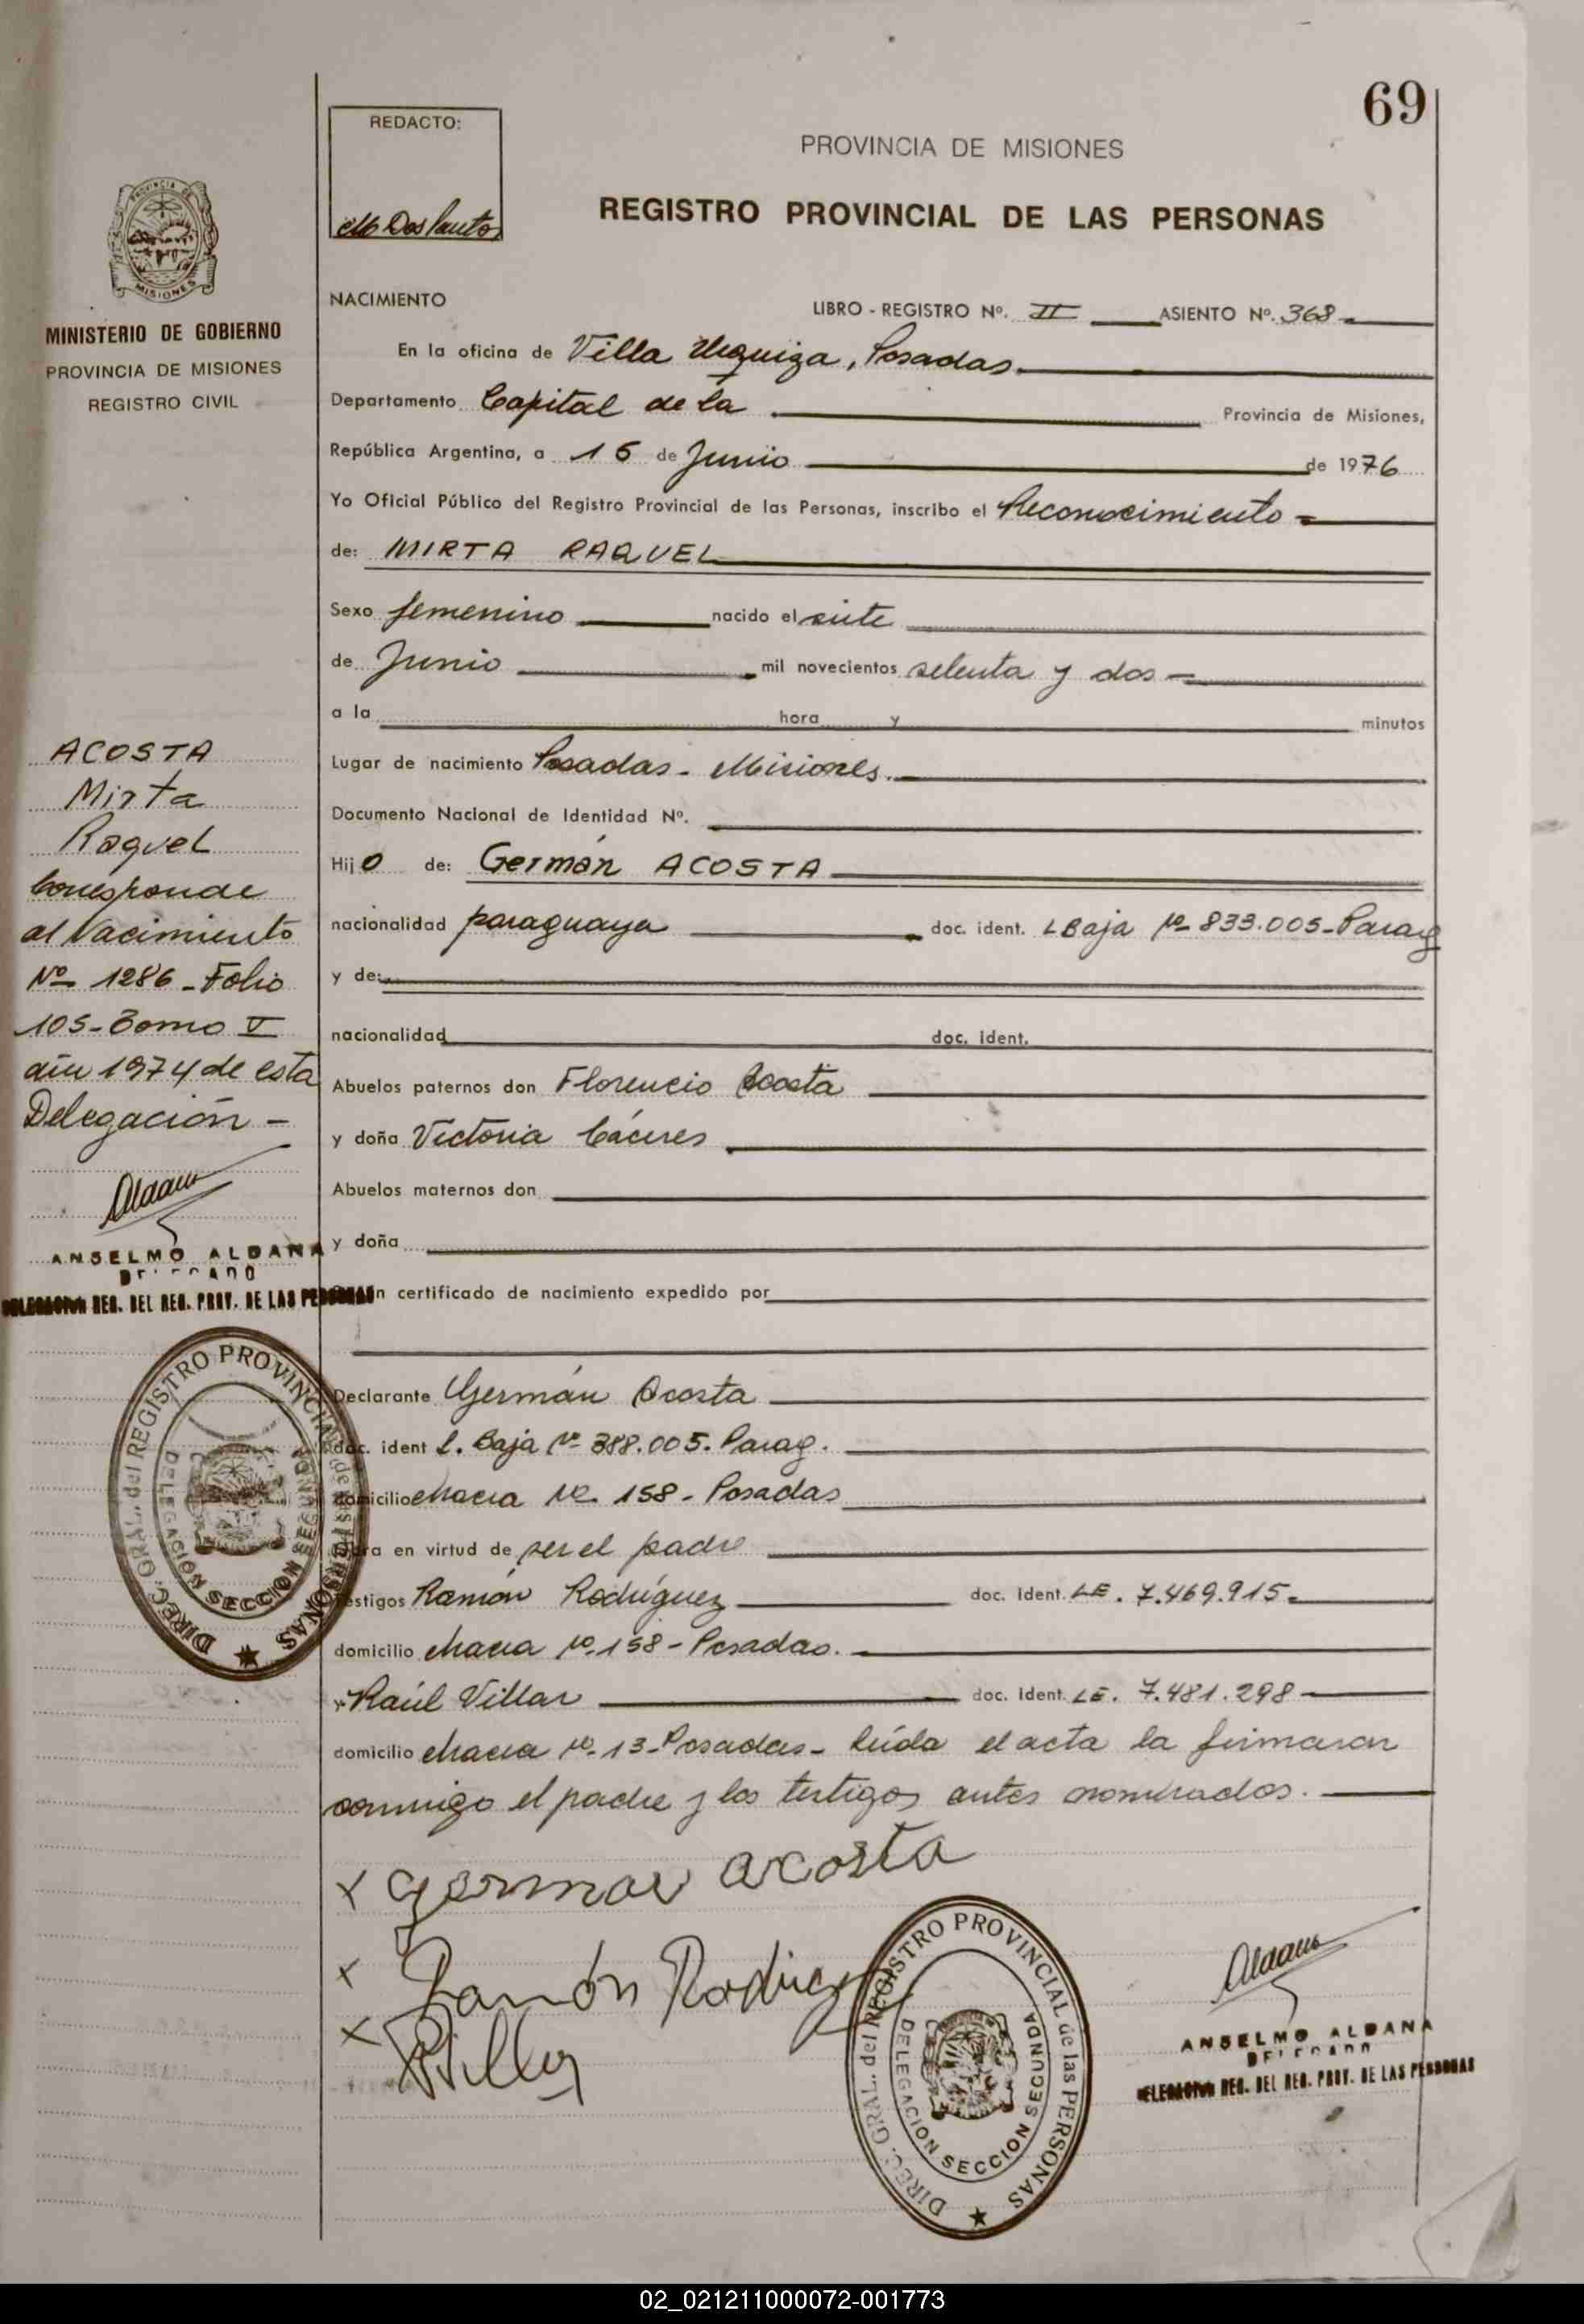 69
REDACTO:
M Dos Santos
PROVINCIA DE MISIONES
REGISTRO PROVINCIAL DE LAS PERSONAS
PROVINCIA DE
MISIONES
MINISTERIO DE GOBIERNO
PROVINCIA DE MISIONES
REGISTRO CIVIL
NACIMIENTO
LIBRO - REGISTRO Nº. II ASIENTO Nº. 368
En la oficina de Villa Urquiza, Posadas
Departamento Capital de la Provincia de Misiones,
República Argentina, a 16 de Junio de 1976
Yo Oficial Público del Registro Provincial de las Personas, inscribo el Reconocimiento
de: MIRTA RAQUEL
Sexo femenino nacido el siete
de Junio mil novecientos setenta y dos
a la hora y minutos
Lugar de nacimiento Posadas - Misiones.
Documento Nacional de Identidad Nº.
Hijo de: Germán ACOSTA
nacionalidad paraguaya doc. ident. L Baja Nº 833.005 - Parag
y de:
nacionalidad doc. ident.
Abuelos paternos don Florencio Acosta
y doña Victoria Cáceres
Abuelos maternos don
y doña
n certificado de nacimiento expedido por
Declarante Germán Acosta
doc. ident L. Baja Nº 388.005. Parag.
domicilio chacra Nº 158 - Posadas
obra en virtud de ser el padre
Testigos Ramón Rodríguez doc. Ident. LE. 7.469.915
domicilio chacra Nº 158 - Posadas.
y Raúl Villar doc. Ident. LE. 7.481.298
domicilio chacra Nº 13 - Posadas - leída el acta la firmaron
conmigo el padre y los testigos antes nombrados.
ACOSTA
Mirta
Raquel
Corresponde
al Nacimiento
Nº 1286 - Folio
105 - Tomo V
año 1974 de esta
Delegación -
Aldana
ANSELMO ALDANA
DELEGADO
DELEGACION REG. DEL REG. PROV. DE LAS PERSONAS
DIREC. GRAL. del REGISTRO PROVINCIAL de las PERSONAS
DELEGACION SECCION SEGUNDA
x German acosta
x Ramón Rodriguez
x RVillar
DIREC. GRAL. del REGISTRO PROVINCIAL de las PERSONAS
DELEGACION SECCION SEGUNDA
Aldana
ANSELMO ALDANA
DELEGADO
DELEGACION REG. DEL REG. PROV. DE LAS PERSONAS
02_021211000072-001773